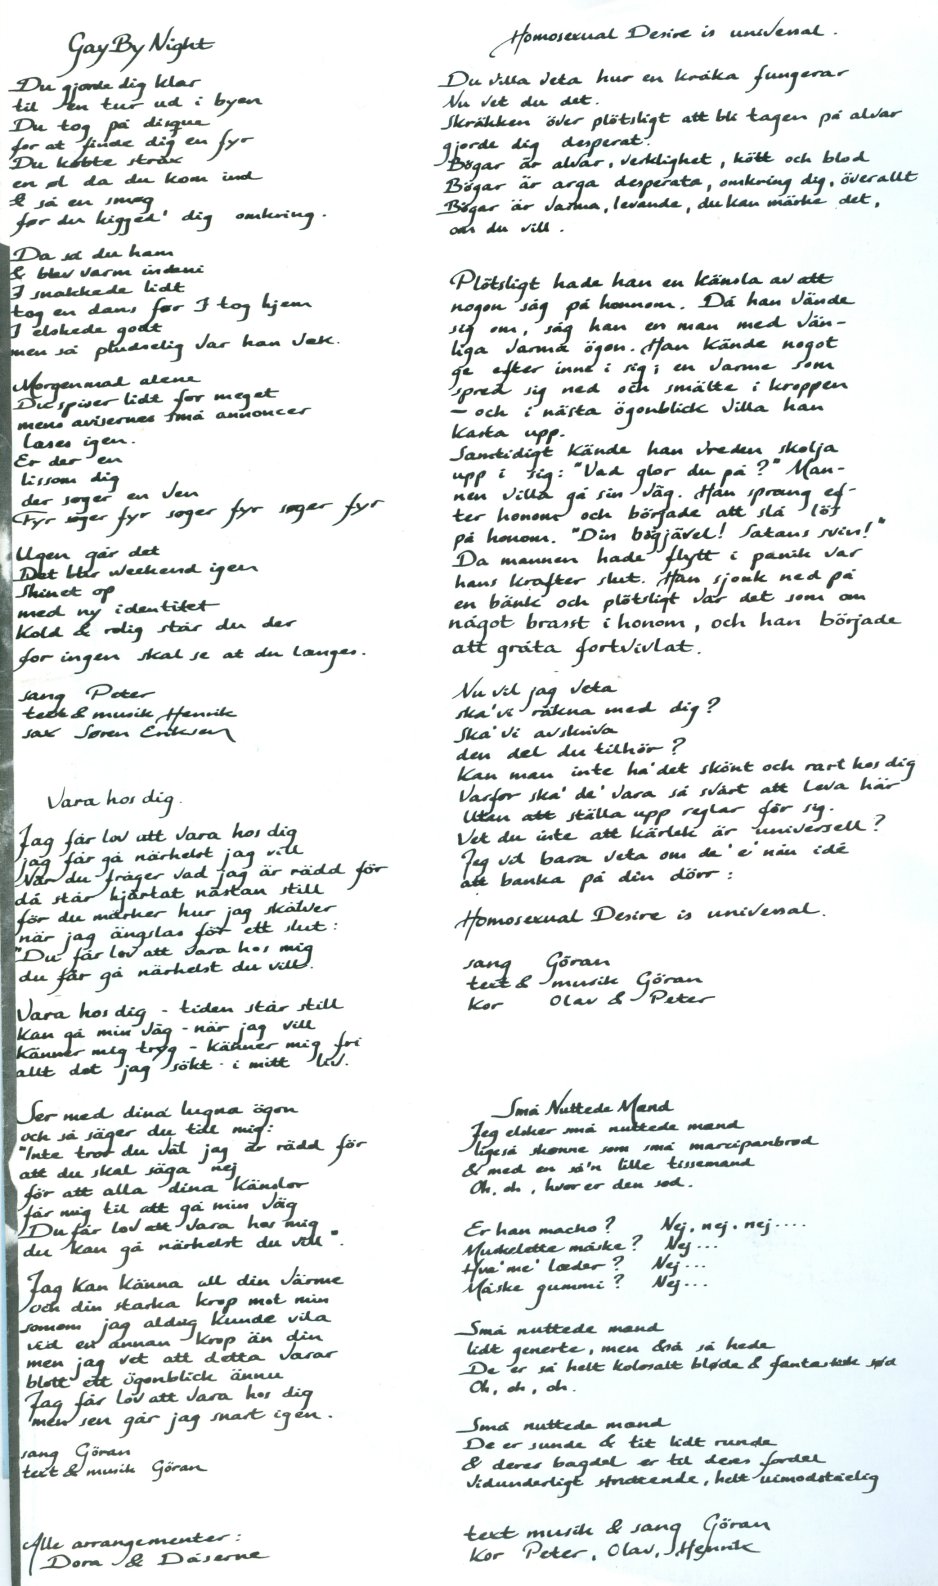 Gay By Night
Du gjorde dig klar
til en tur ud i byen
Du tog på disque
for at finde dig en fyr
Du købte strax
en øl da du kom ind
& så en smøg
før du kigged' dig omkring.
Da så du ham
& blev varm indeni
I snakkede lidt
tog en dans før I tog hjem
I elskede godt
men så pludselig var han væk.
Morgenmad alene
Du spiser lidt for meget
mens avisernes små annoncer
læses igen.
Er der en
lissom dig
der søger en ven
Fyr søger fyr søger fyr søger fyr
Ugen går det
Det blir weekend igen
Skinet op
med ny identitet
Kold & rolig står du der
for ingen skal se at du længes.
sang Peter
text & musik Henrik
sax Søren Eriksen
Vara hos dig.
Jag får lov att vara hos dig
jag får gå närhelst jag vill
När du fråger vad jag är rädd för
då står hjärtat nästan still
för du märker hur jag skälver
när jag ängslas för ett slut:
"Du får lov att vara hos mig
du får gå närhelst du vill.
Vara hos dig - tiden står still
Kan gå min väg - när jag vill
Känner mig tryg - känner mig fri
allt det jag sökt i mitt liv.
Ser med dina lugna ögon
och så säger du till mig:
"Inte tror du väl jag är rädd för
att du skal säga nej
för att alla dina känslor
får mig til att gå min väg
Du får lov att vara hos mig
du kan gå närhelst du vill".
Jag kan känna all din värme
och din starka krop mot min
somom jag aldrig kunde vila
vid en annan krop än din
men jag vet att detta varar
blott ett ögonblick ännu
Jag får lov att vara hos dig
men sen går jag snart igen.
sang Göran
text & musik Göran
Alle arrangementer:
Dora & Dåserne
Homosexual Desire is universal.
Du villa veta hur en kråka fungerar
Nu vet du det.
Skräkken över plötsligt att bli tagen på alvar
gjorde dig desperat.
Bögar är alvar, verklighet, kött och blod
Bögar är arga desperata, omkring dig, överallt
Bögar är varma, levande, du kan märke det,
om du vill.
Plötsligt hade han en känsla av att
nogon såg på honnom. Då han vände
sig om, såg han en man med vän-
liga varma ögon. Han kände nogot
ge efter inne i sig; en varme som
spred sig ned och smälte i kroppen
- och i nästa ögonblick villa han
kasta upp.
Samtidigt kände han vreden skolja
upp i sig: "Vad glor du på?" Man-
nen villa gå sin väg. Han sprang ef-
ter honom och började att slå lös
på honom. "Din bögjävel! Satans svin!"
Da mannen hade flytt i panik var
hans krafter slut. Han sjonk ned på
en bänk och plötsligt var det som om
något brasst i honom, och han började
att gråta fortvivlat.
Nu vil jag veta
ska' vi räkna med dig?
Ska' vi avskriva
den del du tilhör?
Kan man inte ha' det skönt och rart hos dig
Varfor ska' de' vara så svårt att leva här
Utan att ställa upp reglar för sig.
Vet du inte att kärlek är universell?
Jeg vil bara veta om de' e' nån idé
att banka på din dörr:
Homosexual Desire is universal.
sang Göran
text & musik Göran
Kor Olav & Peter
Små Nuttede Mænd
Jeg elsker små nuttede mænd
ligeså skønne som små marcipanbrød
& med en så'n lille tissemand
Oh, oh, hvor er den sød.
Er han macho? Nej, nej, nej....
Muskelette måske? Nej...
Hva' me' læder? Nej...
Måske gummi? Nej...
Små nuttede mænd
lidt generte, men også så hede
De er så helt kolosalt bløde & fantastisk sød
Oh, oh, oh.
Små nuttede mænd
De er sunde & tit lidt runde
& deres bagdel er til deres fordel
Vidunderligt struttende, helt uimodståelig
text musik & sang Göran
Kor Peter, Olav, Henrik